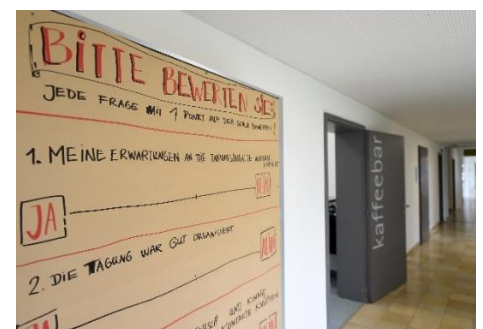 BITTE BEWERTEN SIE:
JEDE FRAGE MIT 1 PUNKT AUF DER SKALA BEWERTEN!
1. MEINE ERWARTUNGEN AN DIE TAGUNGSINHALTE WURDEN
JA
NEIN
2. DIE TAGUNG WAR GUT ORGANISIERT
NEIN
UND KONNTE
KONTAKTE KNÜPFEN
kaffeebar